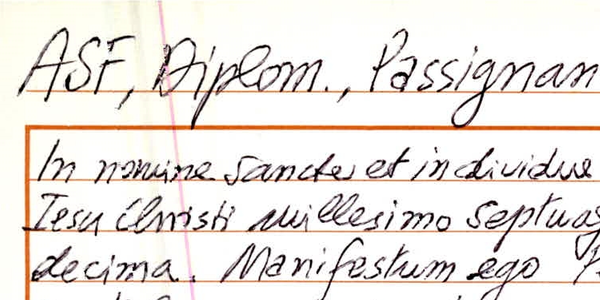 ASF, Diplom., Passignan
In nomine sancte et individue
Iesu Christi millesimo septuag
decima. Manifestum ego